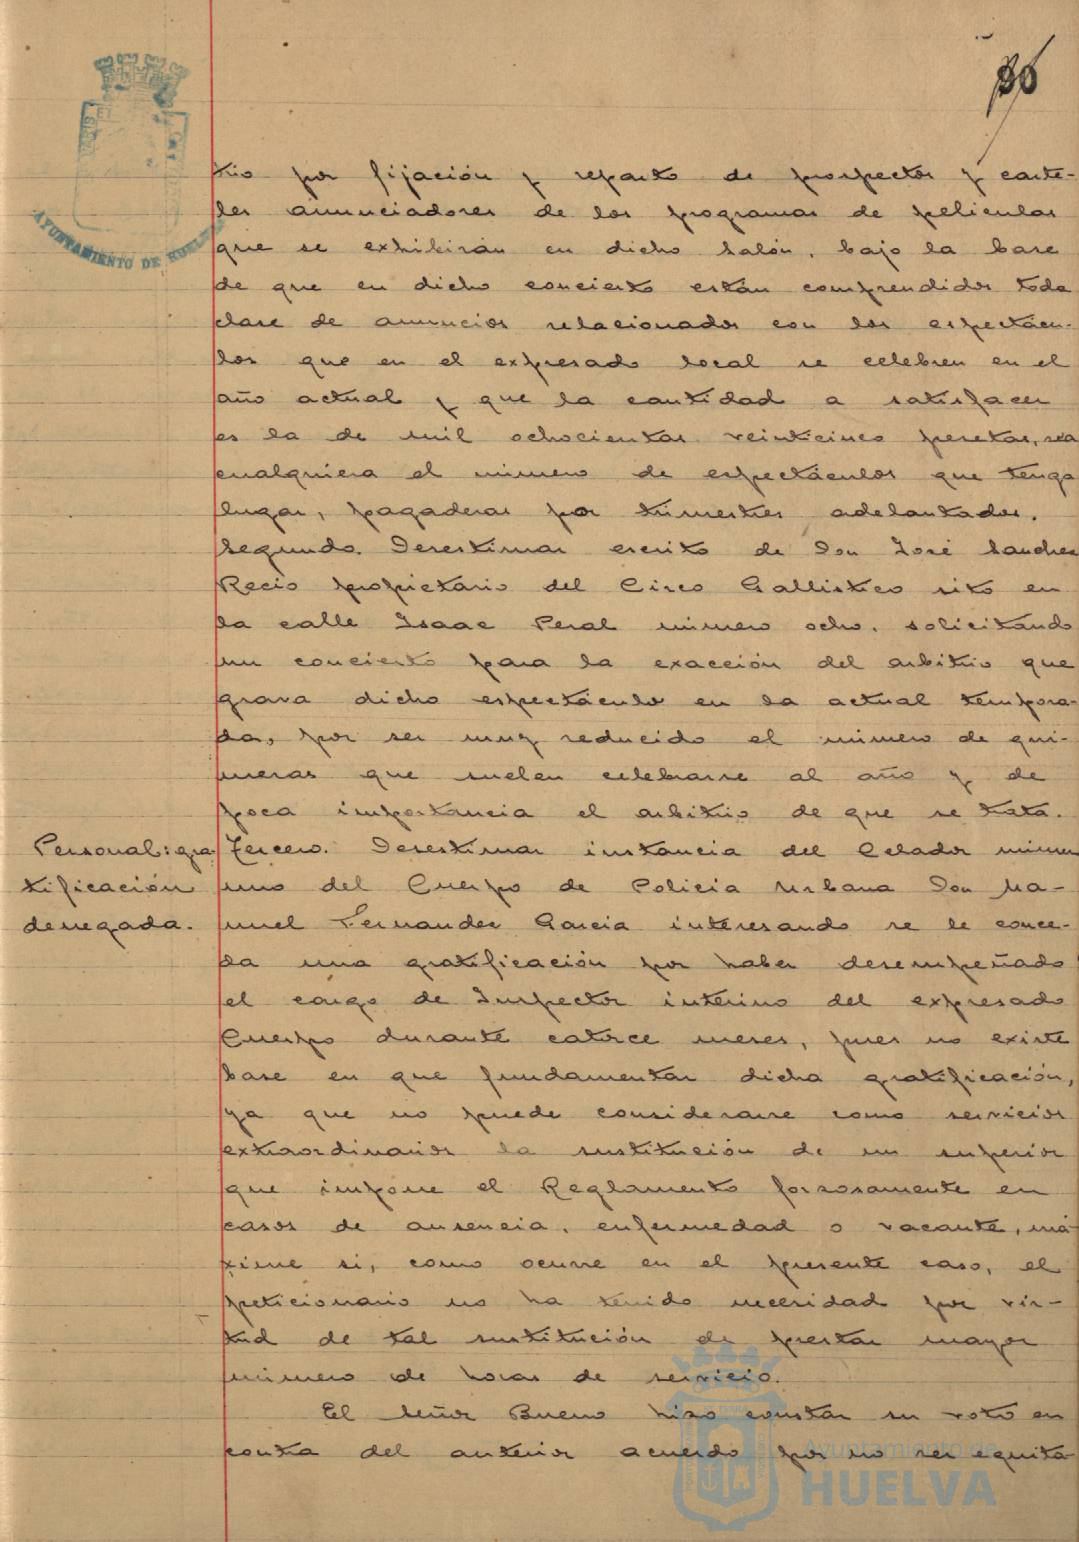 86
AYUNTAMIENTO DE HUELVA
trio por fijación y reparto de prospectos y carte-
les anunciadores de los programas de peliculas
que se exhibirán en dicho salón, bajo la base
de que en dicho concierto están comprendidos toda
clase de anuncios relacionados con los espectácu-
los que en el expresado local se celebren en el
año actual y que la cantidad a satisfacer
es la de mil ochocientas veinticinco pesetas, sea
cualquiera el número de espectáculos que tenga
lugar, pagaderas por trimestres adelantados.
Segundo. Desestimar escrito de Don José Sanchez
Recio propietario del Circo Gallistico sito en
la calle Isaac Peral número ocho, solicitando
un concierto para la exacción del arbitrio que
grava dicho espectáculo en la actual tempora-
da, por ser muy reducido el número de qui-
meras que suelen celebrarse al año y de
poca importancia el arbitrio de que se trata.
Personal: gra-
tificación
denegada.
Tercero. Desestimar instancia del Celador número
uno del Cuerpo de Policia Urbana Don Ma-
nuel Fernandez Garcia interesando se le conce-
da una gratificación por haber desempeñado
el cargo de Inspector interino del expresado
Cuerpo durante catorce meses, pues no existe
base en que fundamentar dicha gratificación,
ya que no puede considerarse como servicios
extraordinarios la sustitución de un superior
que impone el Reglamento forzosamente en
casos de ausencia, enfermedad o vacante, má-
xime si, como ocurre en el presente caso, el
peticionario no ha tenido necesidad por vir-
tud de tal sustitución de prestar mayor
número de horas de servicio.
El Señor Bueno hizo constar su voto en
contra del anterior acuerdo por no ser equita-
Ayuntamiento de
HUELVA